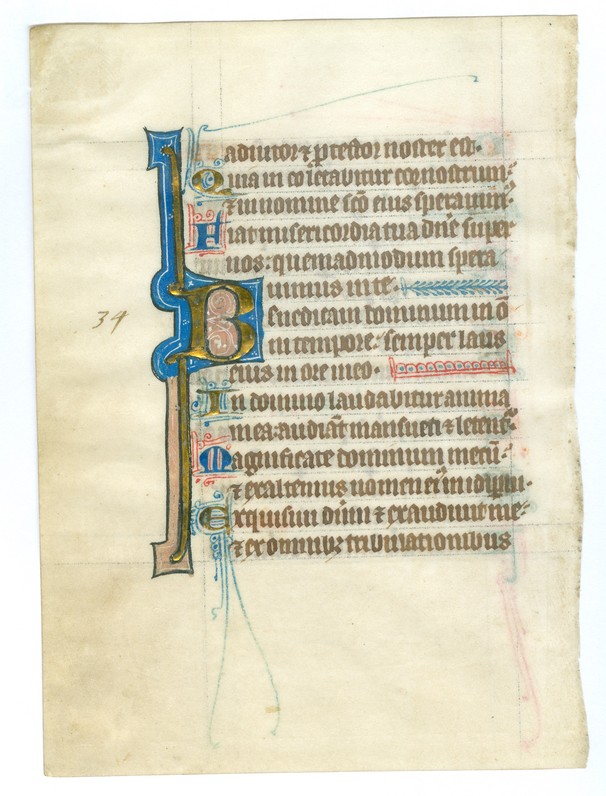 adiutor ⁊ ꝓtector noster est.
Quia in eo letabitur cor nostrum:
⁊ in nomine scō eius sperauim᷒.
34
Fiat misericordia tua dn̄e super
nos: quemadmodum spera
uimus in te.
Benedicam dominum in ō
ni tempore: semper laus
eius in ore meo.
In domino laudabitur anima
mea: audiāt mansueti ⁊ letent᷒.
Magnificate dominum mecū:
⁊ exaltemus nomen eiꝰ in idip̄m.
Exquisiui dn̄m ⁊ exaudiuit me:
⁊ ex omnibꝫ tribulationibus